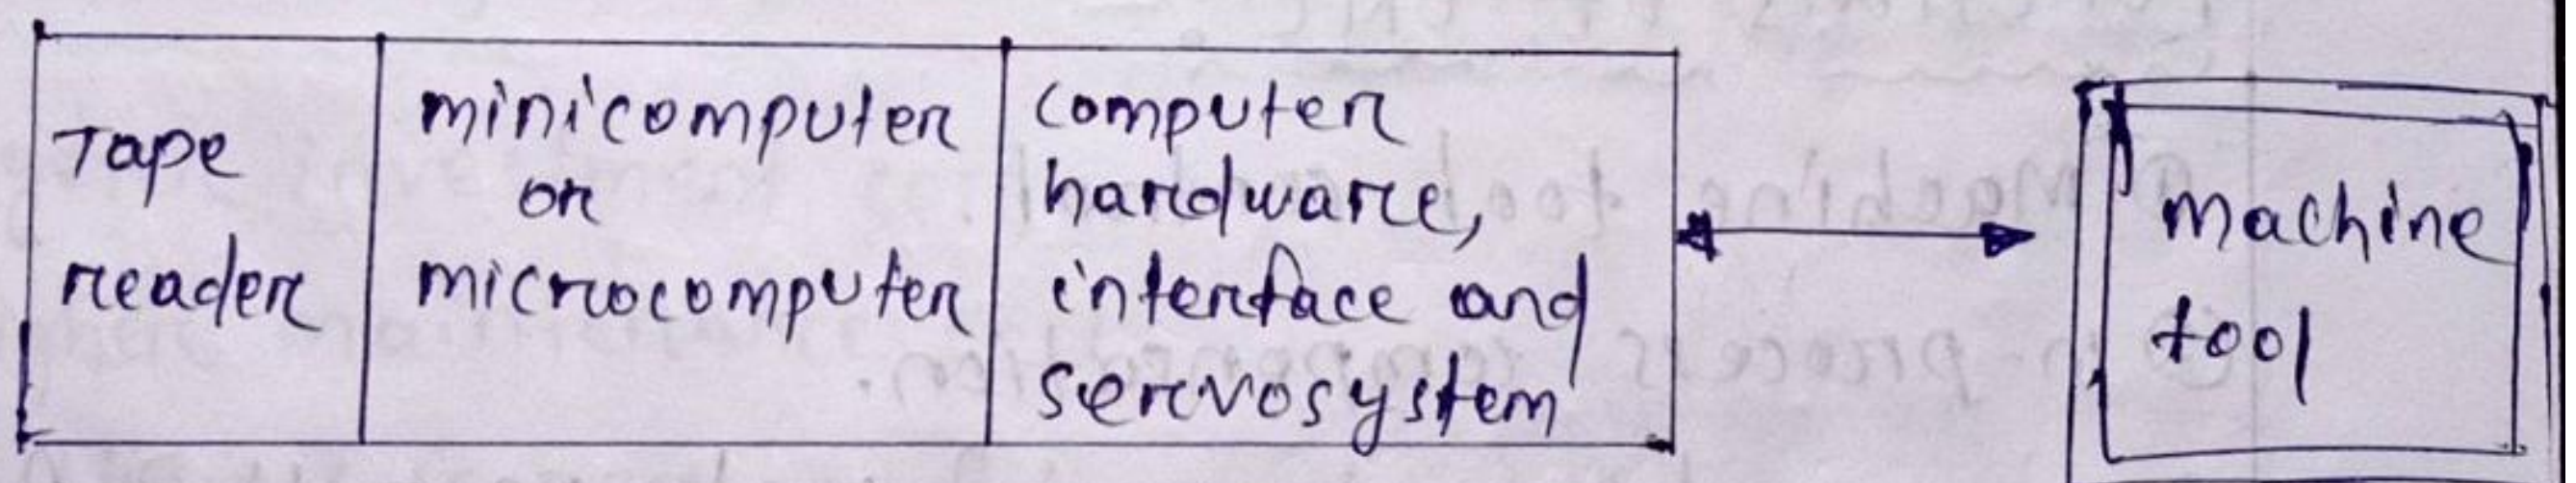 Tape
reader
minicomputer
or
microcomputer
computer
hardware,
interface and
servosystem
machine
tool